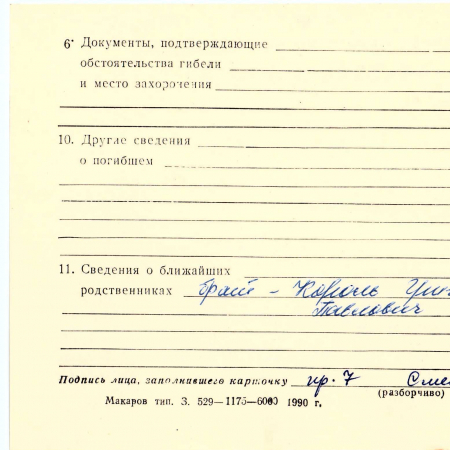 6. Документы, подтверждающие
обстоятельства гибели
и место захоронения
10. Другие сведения
о погибшем
11. Сведения о ближайших
родственниках брат - Король
Павлович
Подпись лица, заполнившего карточку пр. 7 Сме
(разборчиво)
Макаров тип. З. 529—1175—6000 1990 г.